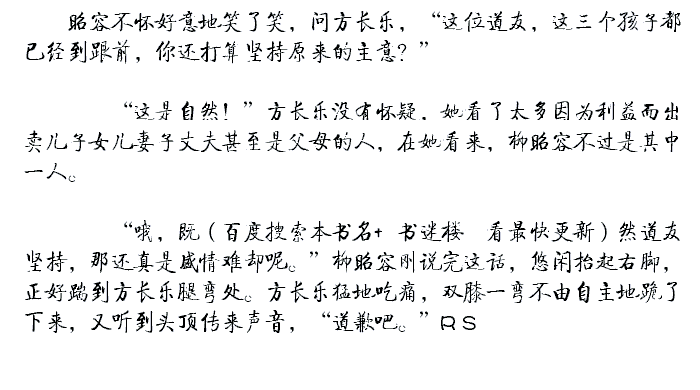 昭容不怀好意地笑了笑，问方长乐，“这位道友，这三个孩子都
已经到跟前，你还打算坚持原来的主意？”
“这是自然！”方长乐没有怀疑，她看了太多因为利益而出
卖儿子女儿妻子丈夫甚至是父母的人，在她看来，柳昭容不过是其中
一人。
“哦，既（百度搜索本书名+ 书迷楼 看最快更新）然道友
坚持，那还真是盛情难却呢。”柳昭容刚说完这话，悠闲抬起右脚，
正好踹到方长乐腿弯处。方长乐猛地吃痛，双膝一弯不由自主地跪了
下来，又听到头顶传来声音，“道歉吧。”RS